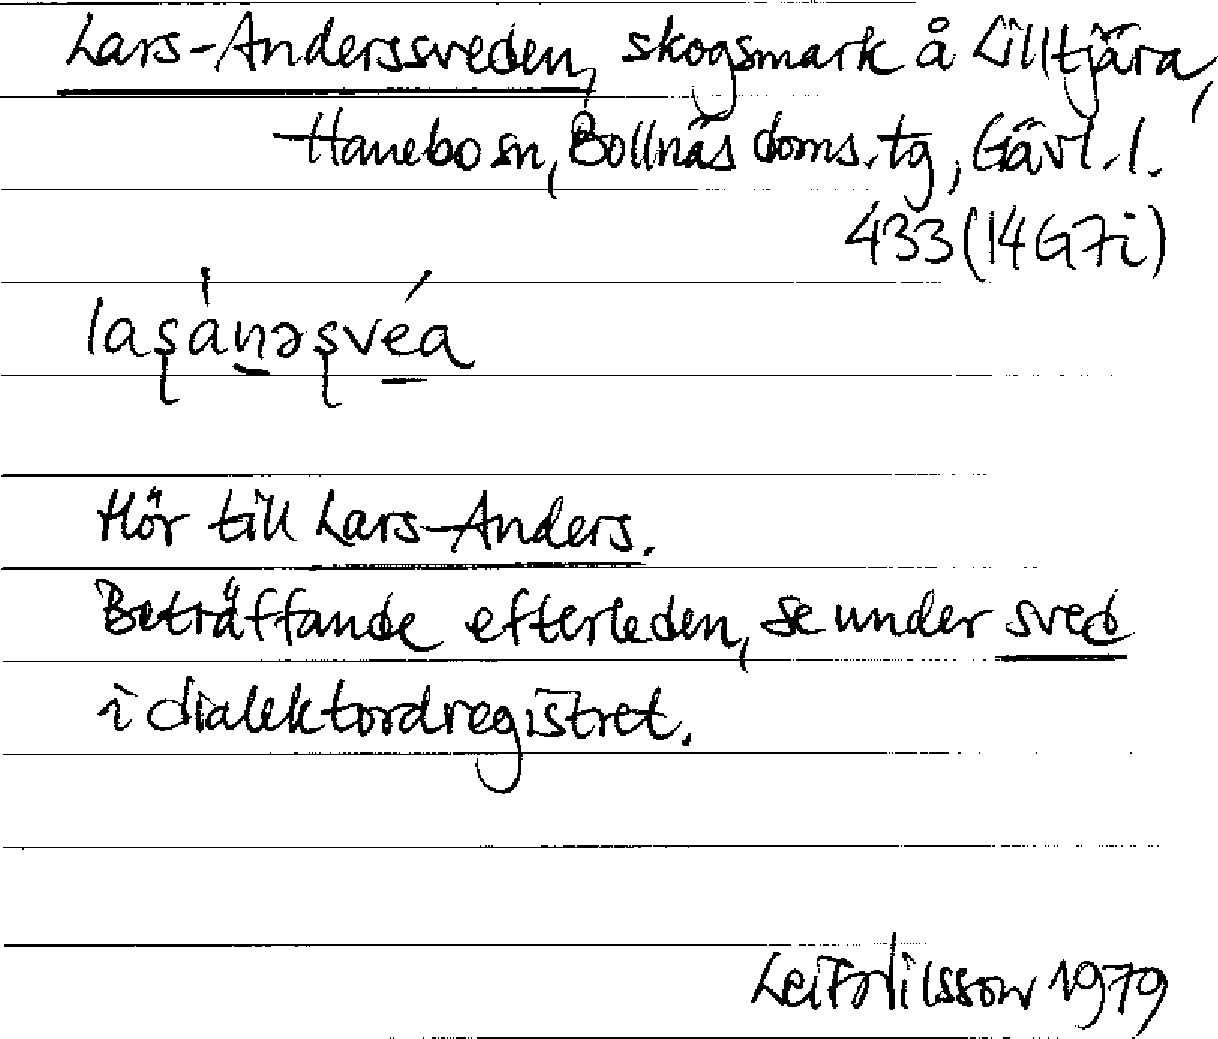 Lars-Anderssveden, skogsmark å Lilltjära,
Hanebo sn, Bollnäs doms.tg, Gävl.l.
433 (14G7i)
laʂánəʂvéa
Hör till Lars-Anders.
Beträffande efterleden, se under sved
i dialektordregistret.
Leif Nilsson 1979